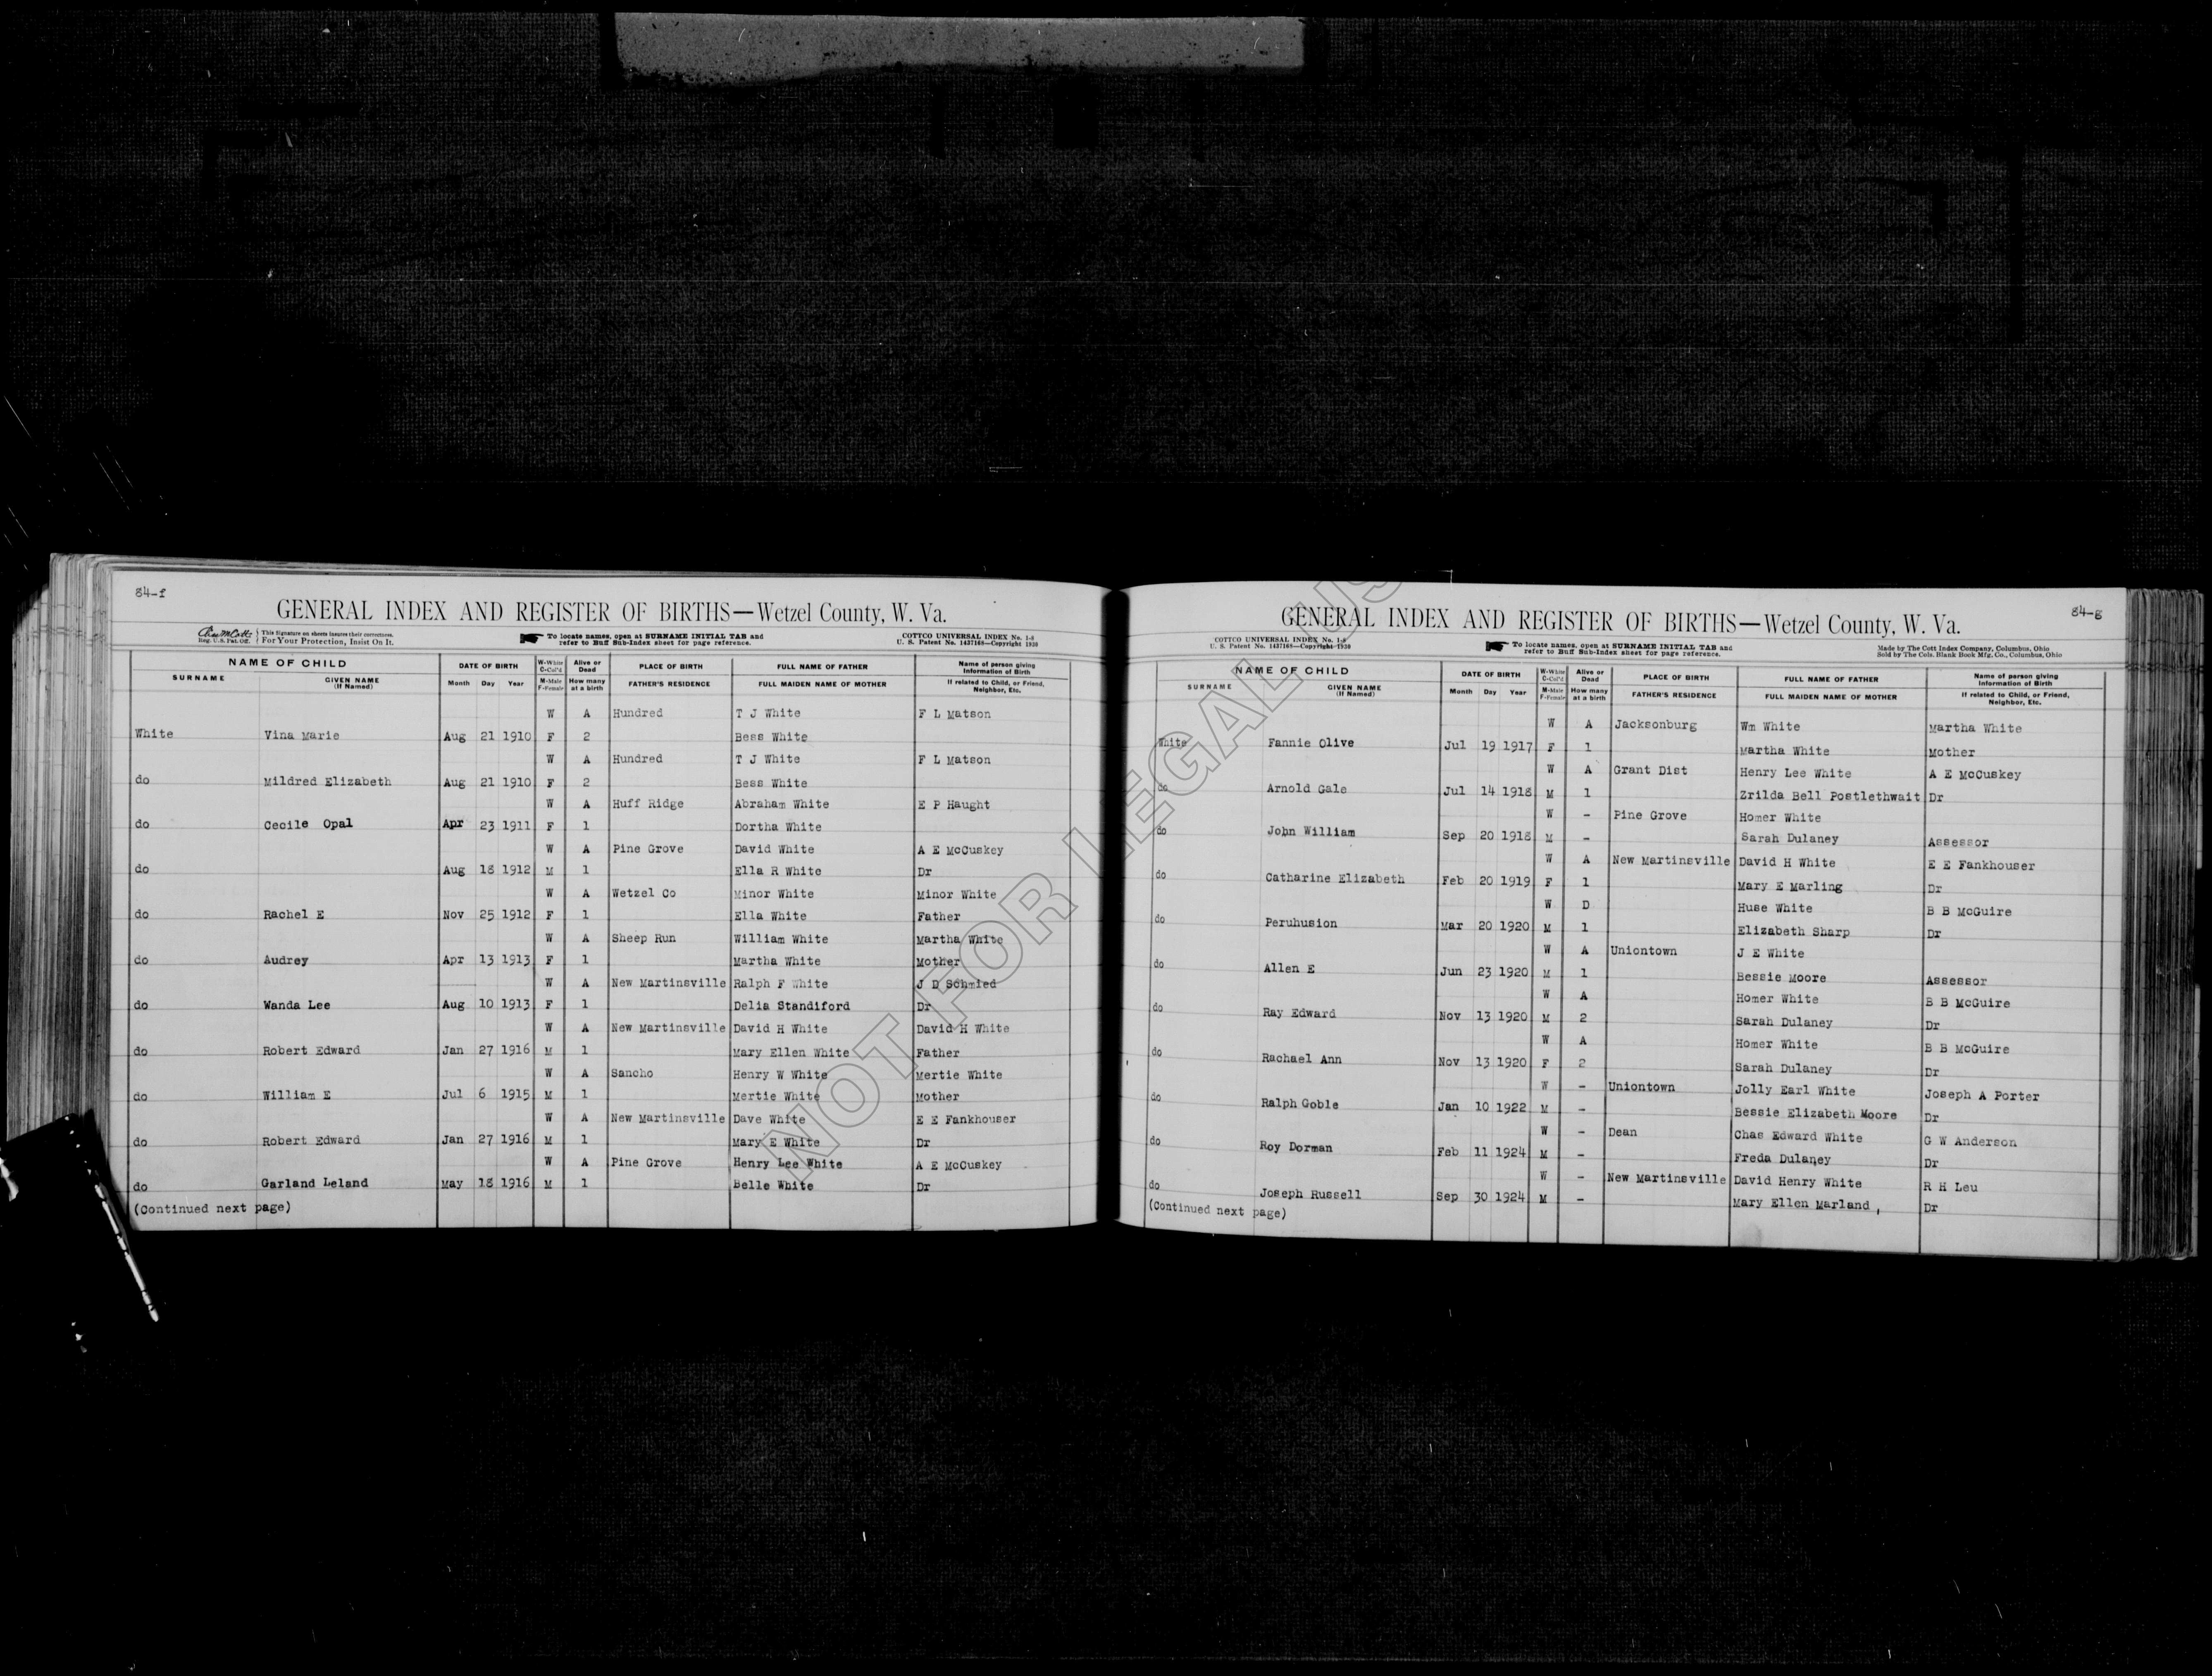 84-f
GENERAL INDEX AND REGISTER OF BIRTHS—Wetzel County, W. Va.
Reg. U.S. Pat. Off. This Signature on sheets insures their correctness. For Your Protection, Insist On It.
To locate names, open at SURNAME INITIAL TAB and refer to Buff Sub-Index sheet for page reference.
COTTCO UNIVERSAL INDEX No. 1-8
U. S. Patent No. 1437168—Copyright 1930
NAME OF CHILD DATE OF BIRTH W-White C-Col'd Alive or Dead PLACE OF BIRTH FULL NAME OF FATHER Name of person giving Information of Birth
SURNAME GIVEN NAME (If Named) Month Day Year M-Male F-Female How many at a birth FATHER'S RESIDENCE FULL MAIDEN NAME OF MOTHER If related to Child, or Friend, Neighbor, Etc.
W A Hundred T J White F L Matson
White Vina Marie Aug 21 1910 F 2 Bess White
W A Hundred T J White F L Matson
do Mildred Elizabeth Aug 21 1910 F 2 Bess White
W A Huff Ridge Abraham White E P Haught
do Cecile Opal Apr 23 1911 F 1 Dortha White
W A Pine Grove David White A E McCuskey
do Aug 18 1912 M 1 Ella R White Dr
W A Wetzel Co Minor White Minor White
do Rachel E Nov 25 1912 F 1 Ella White Father
W A Sheep Run William White Martha White
do Audrey Apr 13 1913 F 1 Martha White Mother
W A New Martinsville Ralph F White J D Schmied
do Wanda Lee Aug 10 1913 F 1 Delia Standiford Dr
W A New Martinsville David H White David H White
do Robert Edward Jan 27 1916 M 1 Mary Ellen White Father
W A Sancho Henry W White Mertie White
do William E Jul 6 1915 M 1 Mertie White Mother
W A New Martinsville Dave White E E Fankhouser
do Robert Edward Jan 27 1916 M 1 Mary E White Dr
W A Pine Grove Henry Lee White A E McCuskey
do Garland Leland May 18 1916 M 1 Belle White Dr
(Continued next page)
84-g
GENERAL INDEX AND REGISTER OF BIRTHS—Wetzel County, W. Va.
COTTCO UNIVERSAL INDEX No. 1-8
U. S. Patent No. 1437168—Copyright 1930
To locate names, open at SURNAME INITIAL TAB and refer to Buff Sub-Index sheet for page reference.
Made by The Cott Index Company, Columbus, Ohio
Sold by The Cols. Blank Book Mfg. Co., Columbus, Ohio
NAME OF CHILD DATE OF BIRTH W-White C-Col'd Alive or Dead PLACE OF BIRTH FULL NAME OF FATHER Name of person giving Information of Birth
SURNAME GIVEN NAME (If Named) Month Day Year M-Male F-Female How many at a birth FATHER'S RESIDENCE FULL MAIDEN NAME OF MOTHER If related to Child, or Friend, Neighbor, Etc.
W A Jacksonburg Wm White Martha White
White Fannie Olive Jul 19 1917 F 1 Martha White Mother
W A Grant Dist Henry Lee White A E McCuskey
do Arnold Gale Jul 14 1918 M 1 Zrilda Bell Postlethwait Dr
W - Pine Grove Homer White
do John William Sep 20 1918 M - Sarah Dulaney Assessor
W A New Martinsville David H White E E Fankhouser
do Catharine Elizabeth Feb 20 1919 F 1 Mary E Marling Dr
W D Huse White B B McGuire
do Peruhusion Mar 20 1920 M 1 Elizabeth Sharp Dr
W A Uniontown J E White
do Allen E Jun 23 1920 M 1 Bessie Moore Assessor
W A Homer White B B McGuire
do Ray Edward Nov 13 1920 M 2 Sarah Dulaney Dr
W A Homer White B B McGuire
do Rachael Ann Nov 13 1920 F 2 Sarah Dulaney Dr
W - Uniontown Jolly Earl White Joseph A Porter
do Ralph Goble Jan 10 1922 M - Bessie Elizabeth Moore Dr
W - Dean Chas Edward White G W Anderson
do Roy Dorman Feb 11 1924 M - Freda Dulaney Dr
W - New Martinsville David Henry White R H Leu
do Joseph Russell Sep 30 1924 M - Mary Ellen Marland, Dr
(Continued next page)
NOT FOR LEGAL US